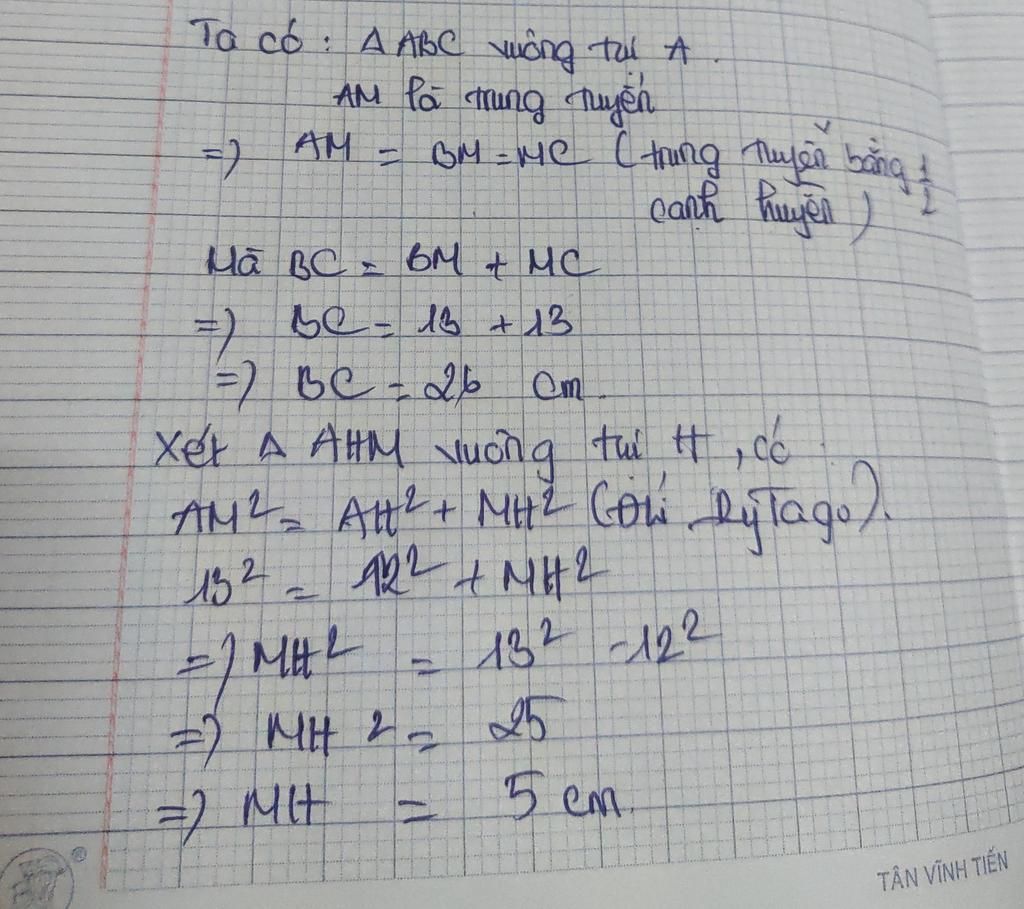 Ta có : Δ ABC vuông tại A .
AM là trung tuyến
=) AM = BM = MC ( trung tuyến bằng 1/2
cạnh huyền )
Mà BC = BM + MC
=) BC = 13 + 13
=) BC = 26 cm .
Xét Δ AHM vuông tại H , có
AM² = AH² + MH² ( Đlí PyTago ).
13² = 12² + MH²
=) MH² = 13² - 12²
=) MH² = 25
=) MH = 5 cm .
TÂN VĨNH TIẾN